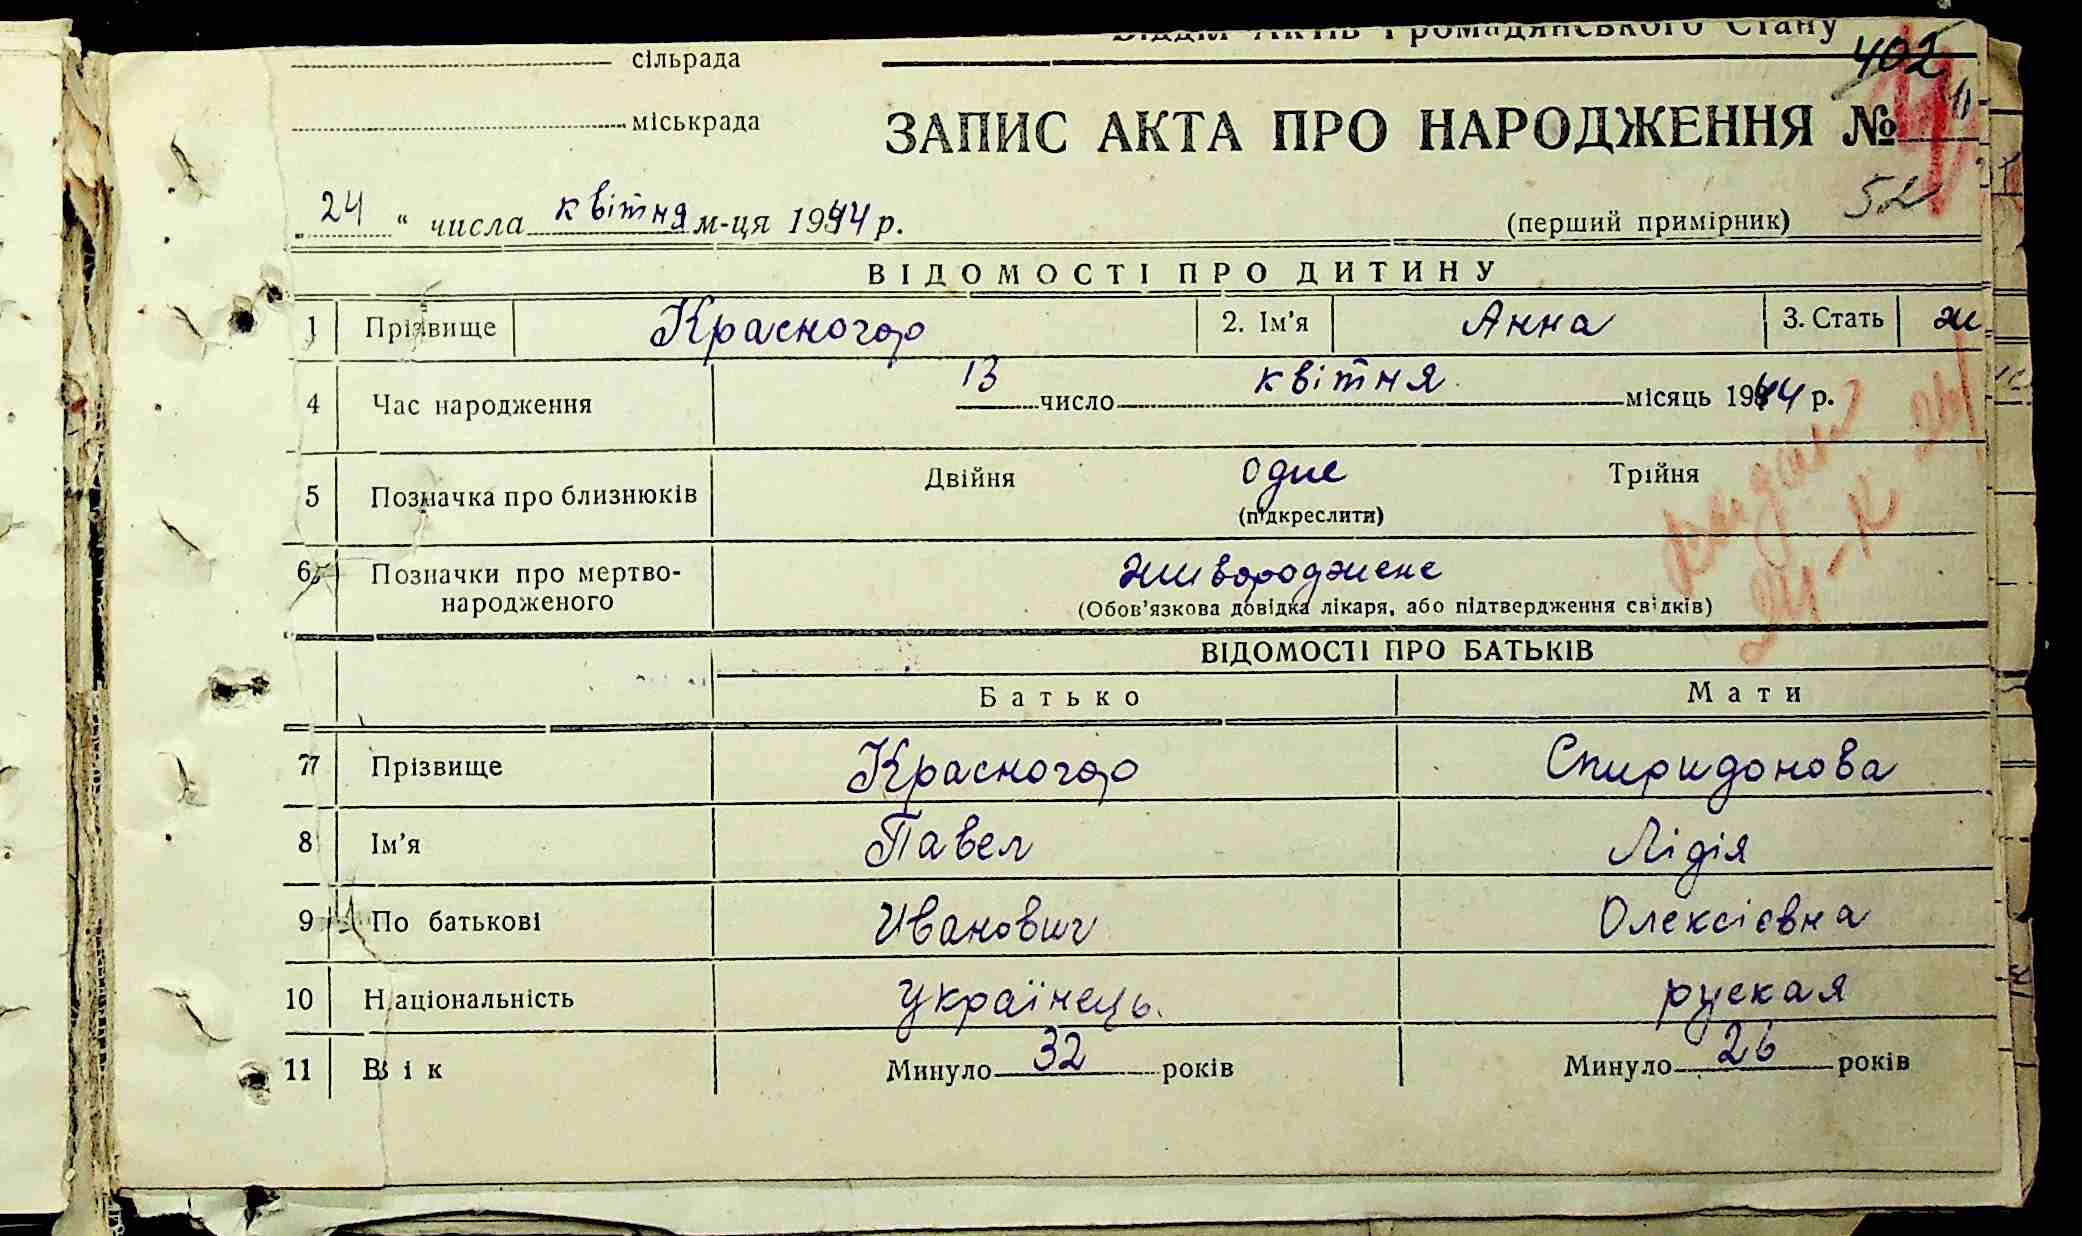 Відділ Актів Громадянського Стану
сільрада
402
міськрада
ЗАПИС АКТА ПРО НАРОДЖЕННЯ №
„ 24 “ числа квітня м-ця 1944 р.
(перший примірник) 52
ВІДОМОСТІ ПРО ДИТИНУ
1 Прізвище Красногор 2. Ім'я Анна 3. Стать ж.
4 Час народження 13 число квітня місяць 1944 р.
5 Позначка про близнюків Двійня одне Трійня
(підкреслити)
6 Позначки про мертво-
народженого живороджене
(Обов'язкова довідка лікаря, або підтвердження свідків)
ВІДОМОСТІ ПРО БАТЬКІВ
Батько Мати
7 Прізвище Красногор Спиридонова
8 Ім'я Павел Лідія
9 По батькові Иванович Олексієвна
10 Національність Українець. руская
11 Вік Минуло 32 років Минуло 26 років